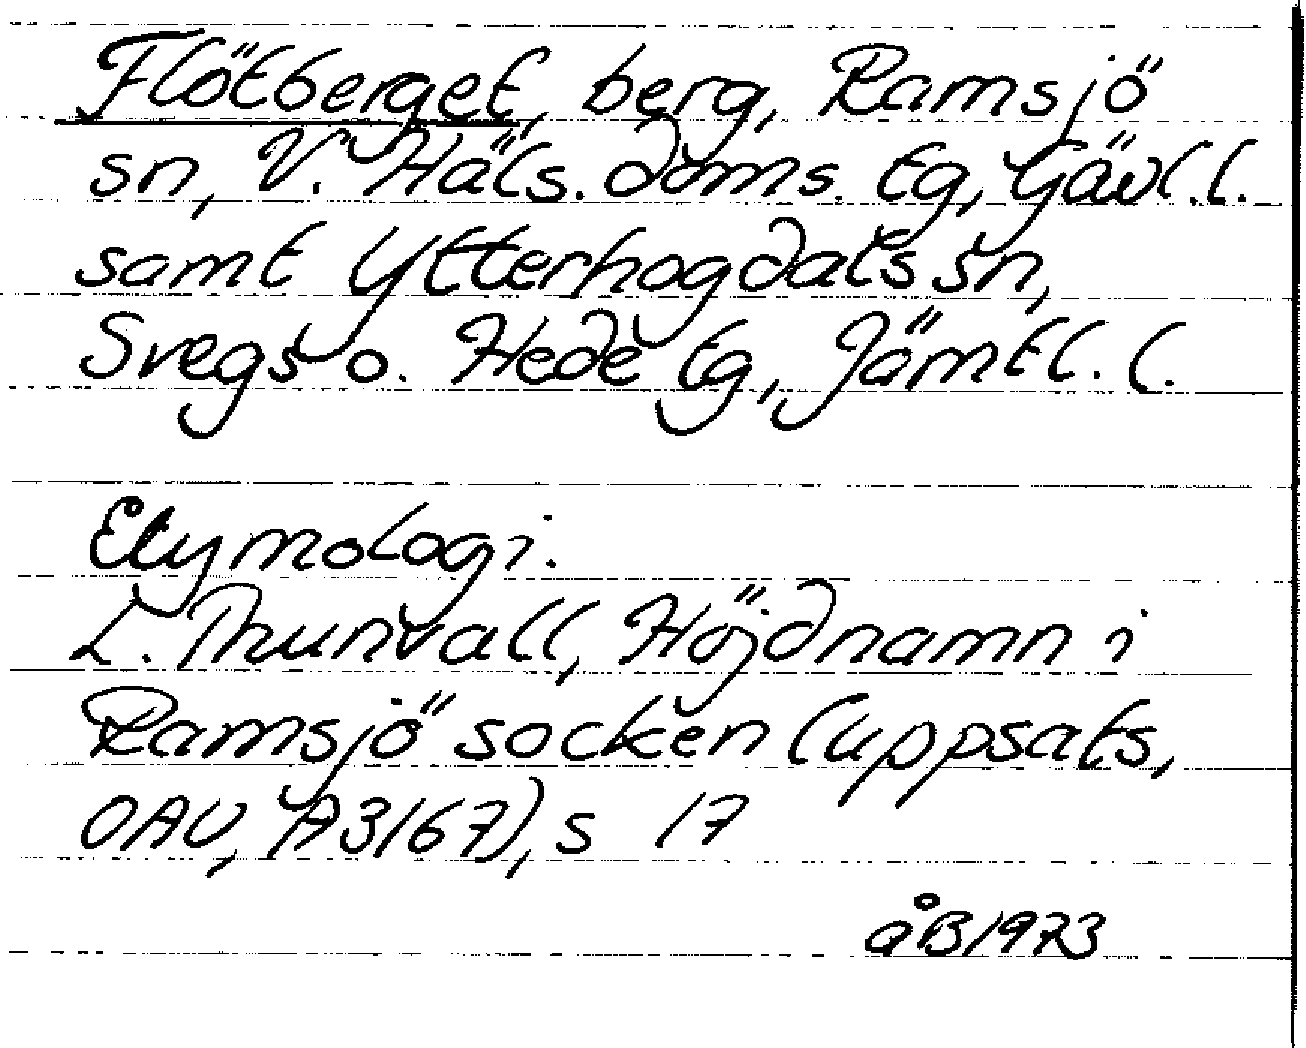 Flötberget, berg, Ramsjö
sn, V. Häls. doms. tg, Gävl.l.
samt Ytterhogdals sn,
Svegs o. Hede tg, Jämtl. l.
Etymologi.
L. Thunvall, Höjdnamn i
Ramsjö socken (uppsats,
OAU, A3167), s 17
åB 1973